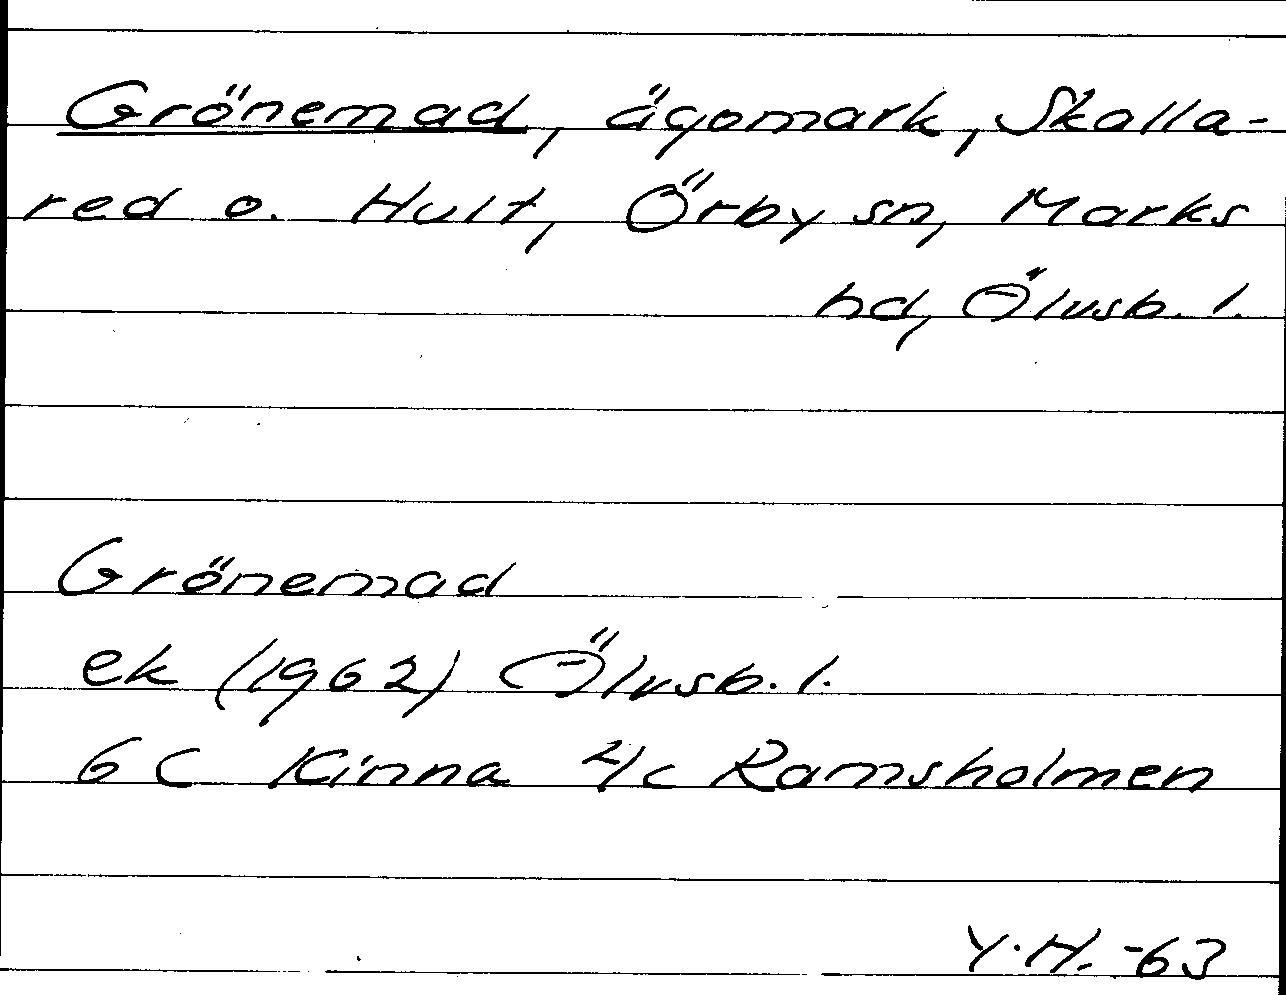 Grönemad, ägomark, Skalla-
red o. Hult, Örby sn, Marks
hd, Älvsb. l.
Grönemad
ek (1962) Älvsb. l.
6 C Kinna 2/c Ramsholmen
Y.H. -63